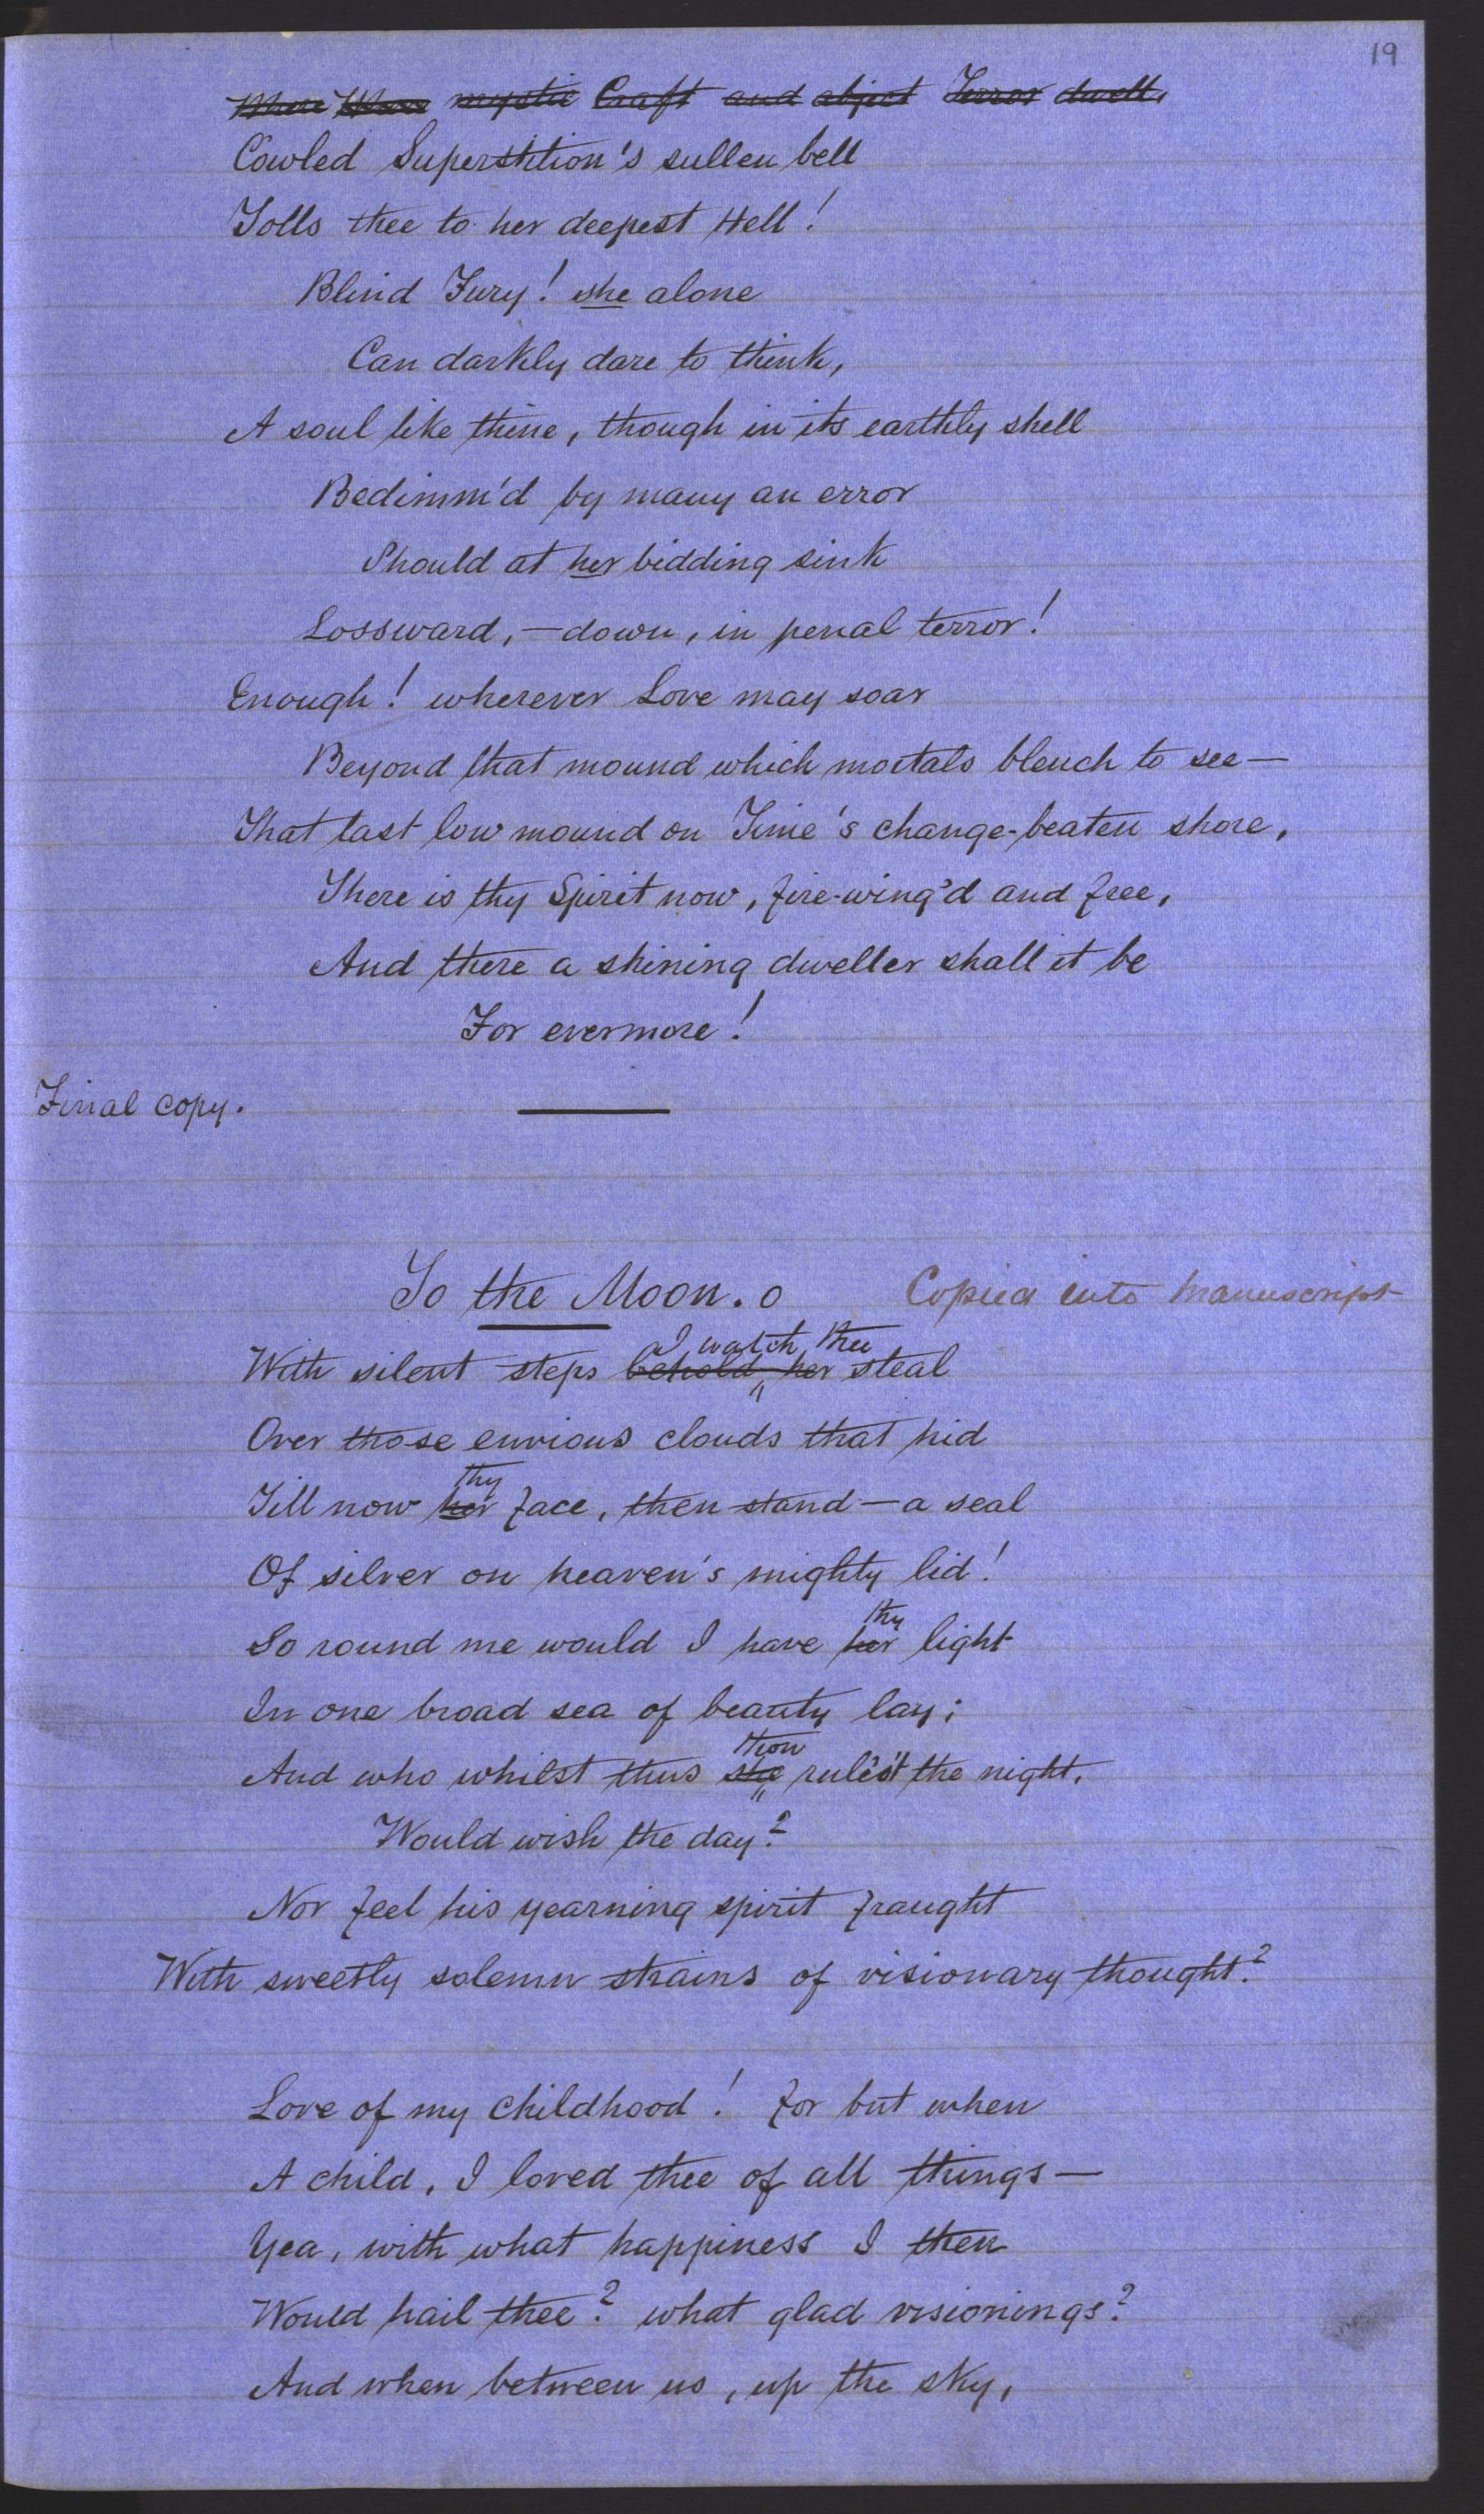 19
Where Where mystic Craft and abject Terror dwell,
Cowled Superstition's sullen bell
Tolls thee to her deepest Hell!
Blind Fury! she alone
Can darkly dare to think,
A soul like thine, though in its earthly shell
Bedimm'd by many an error
Should at her bidding sink
Lossward, — down, in penal terror!
Enough! wherever Love may soar
Beyond that mound which mortals blench to see —
That last low mound on Time's change-beaten shore,
There is thy Spirit now, fire-wing'd and free,
And there a shining dweller shall it be
For evermore!
Final copy.
To the Moon. o Copied into manuscript
I watch thee
With silent steps behold, her steal
Over those envious clouds that hid
thy
Till now her face, then stand — a seal
Of silver on heaven's mighty lid!
thy
So round me would I have her light
In one broad sea of beauty lay;
thou
And who whilst thus she rule'st the night,
Would wish the day?
Nor feel his yearning spirit fraught
With sweetly solemn strains of visionary thought?
Love of my childhood! for but when
A child, I loved thee of all things —
Yea, with what happiness I then
Would hail thee? what glad visionings?
And when between us, up the sky,